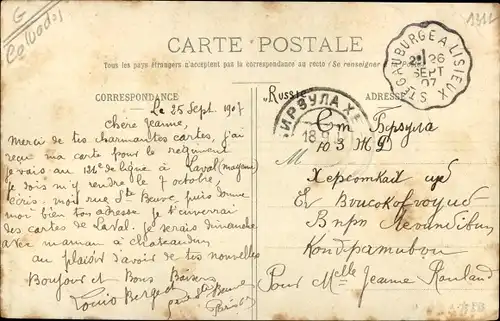 G
Calvados
1311
CARTE POSTALE
Tous les pays étrangers n'acceptent pas la correspondance au recto (Se renseigner
STE GAUBURGE A LISIEUX
26
SEPT
07
CORRESPONDANCE
ADRESSE
"Russie"
БИРЗУЛА Х
Le 25 Sept. 1907
Chère Jeanne,
Merci de tes charmantes cartes, j'ai
reçu ma carte pour le régiment
je vais au 124e de ligne à Laval (mayenne)
je dois m'y rendre le 7 octobre,
écris-moi rue Ste Beuve, puis donne
moi bien ton adresse je t'enverrai
des cartes de Laval. Je serais dimanche
avec maman à Chateaudun
au plaisir d'avoir de tes nouvelles
Bonjour et Bons Baisers
Louis
Ste Beuve
Paris
Ст Бирзула
M
Ю З Ж Д
Херсонская губ
Кондратівои
Pour Melle Jeanne Rouland